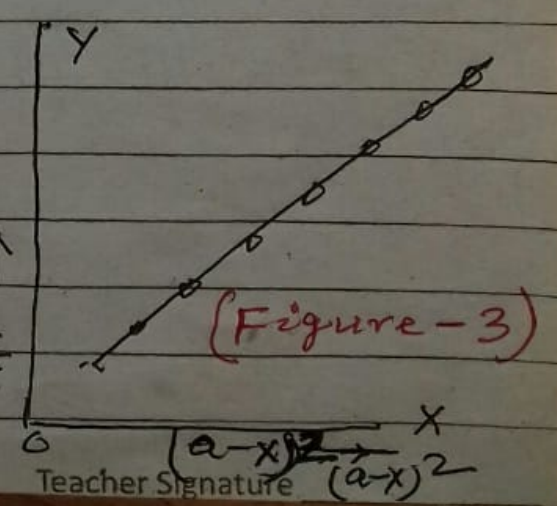 Y
(Figure-3)
X
0
(a-x)2
(a-x)2
Teacher Signature